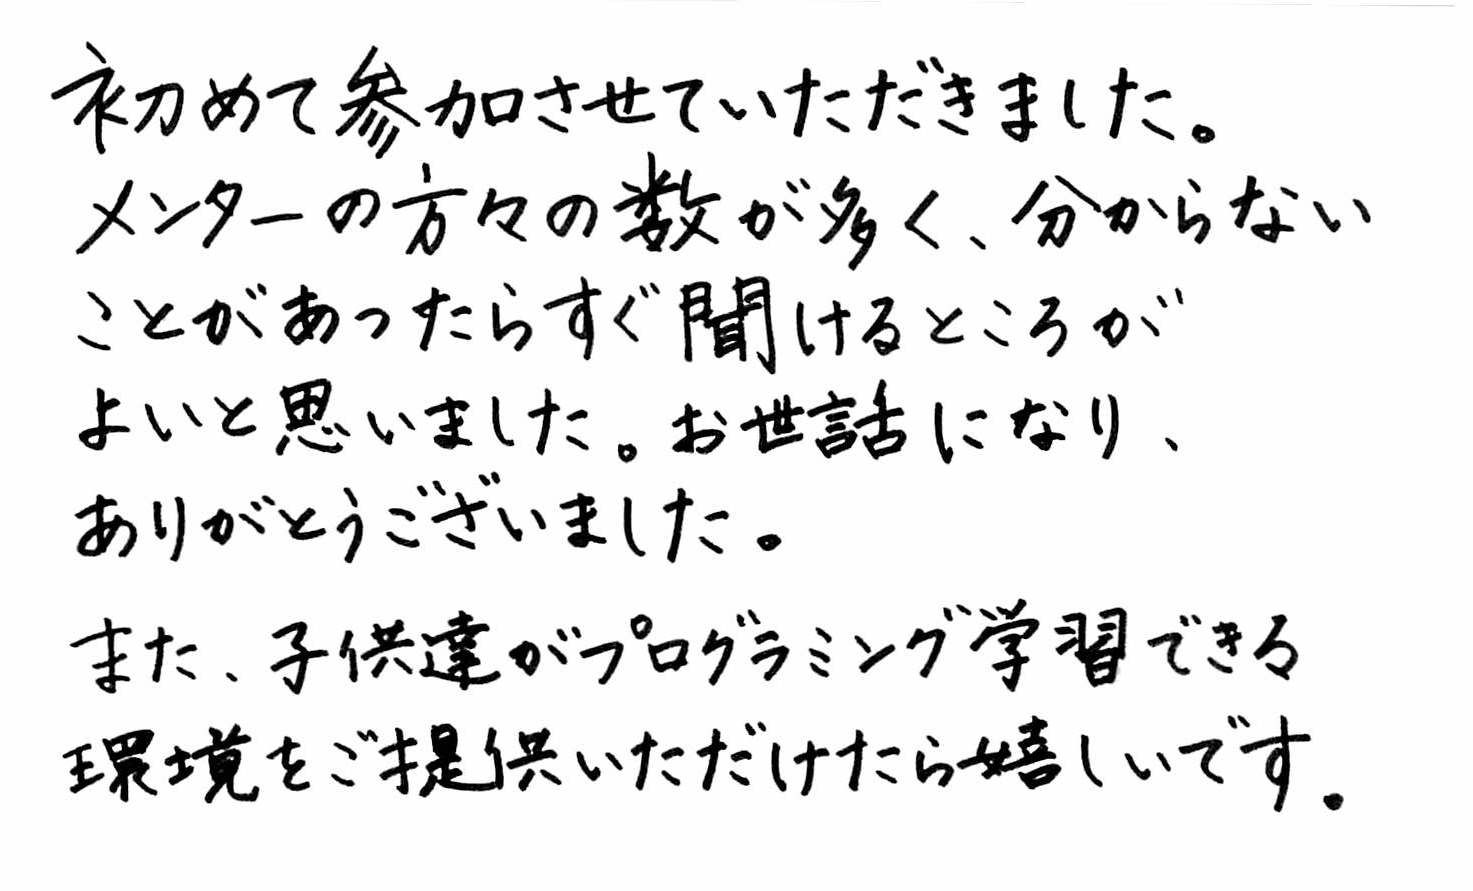 初めて参加させていただきました。
メンターの方々の数が多く、分からない
ことがあったらすぐ聞けるところが
よいと思いました。お世話になり、
ありがとうございました。
また、子供達がプログラミング学習できる
環境をご提供いただけたら嬉しいです。